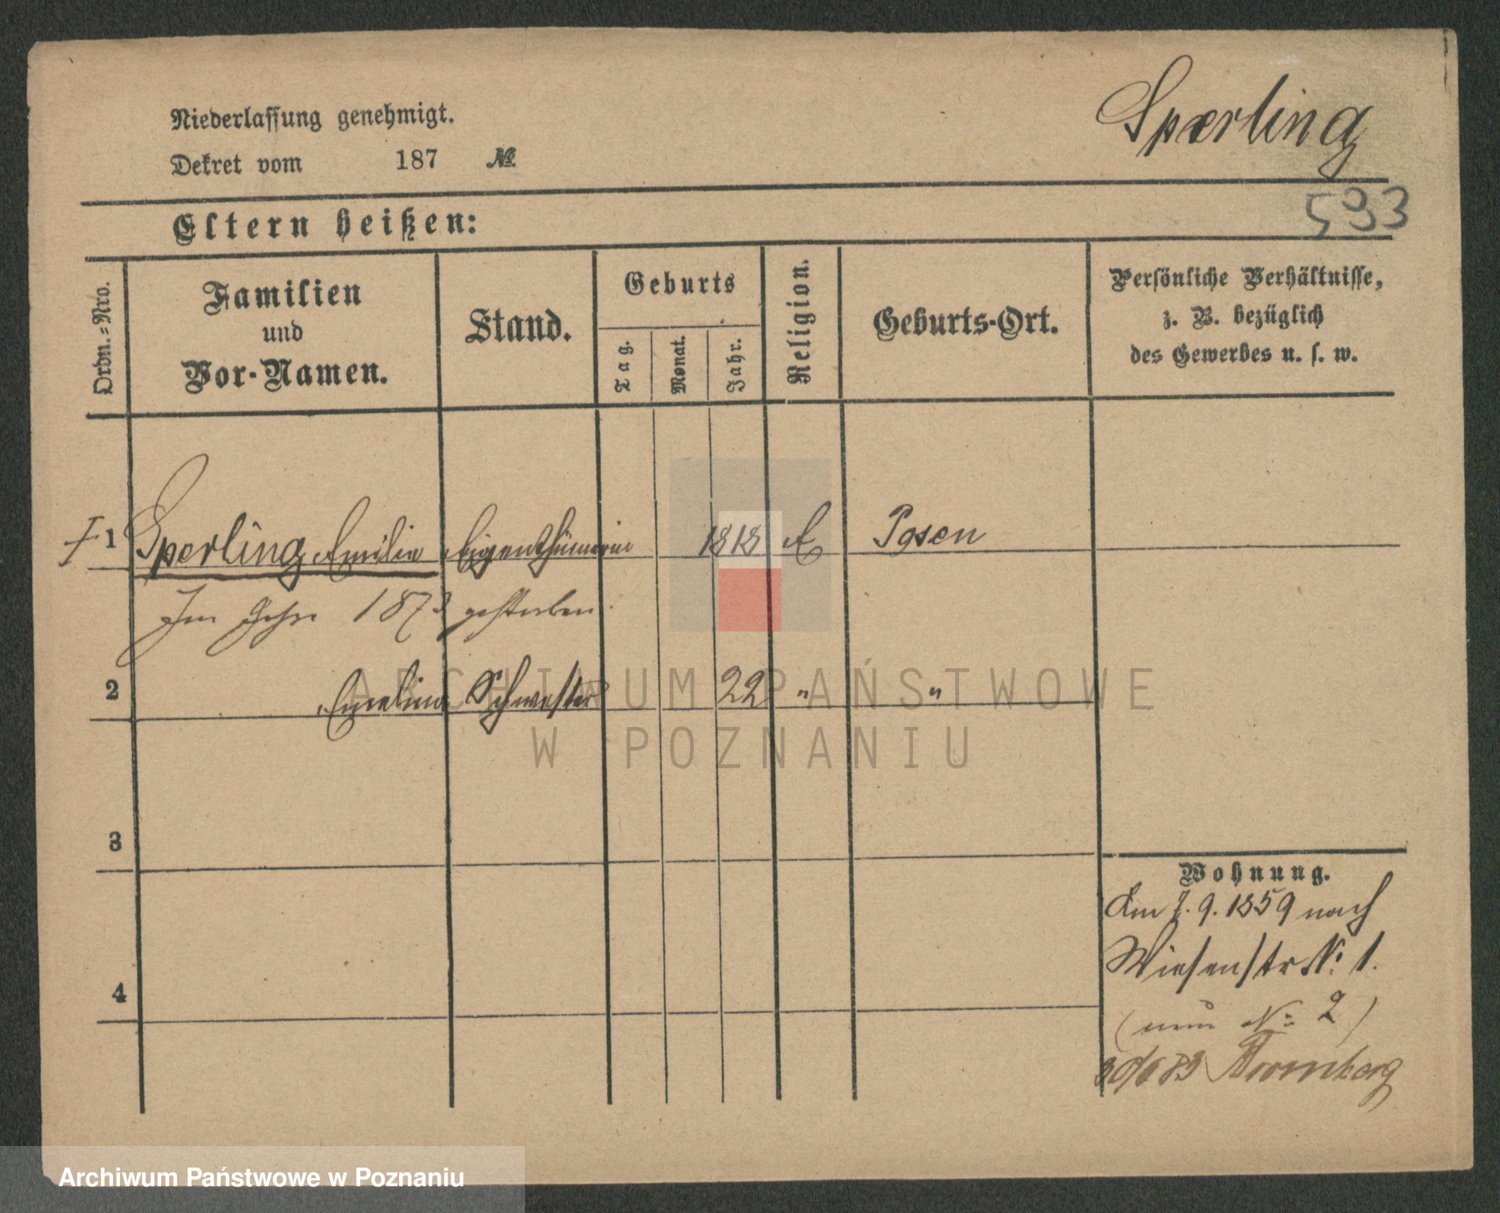 Niederlassung genehmigt.
Sperling
Dekret vom 187 №
593
Eltern heißen:
Ordn.-Nro.
Familien
und
Vor-Namen.
Stand.
Geburts
Tag.
Monat.
Jahr.
Religion.
Geburts-Ort.
Persönliche Verhältnisse,
z. B. bezüglich
des Gewerbes u. s. w.
1 Sperling Emilie Eigenthümerin 1818 E Posen
Im Jahre 1873 gestorben.
2 Emeline Schwester 22 " "
3
4
Wohnung.
Am 7. 9. 1859 nach
Wiesenstr. N: 1.
(neue N: 2)
30/6 83 Bromberg
ARCHIWUM PAŃSTWOWE
W POZNANIU
Archiwum Państwowe w Poznaniu